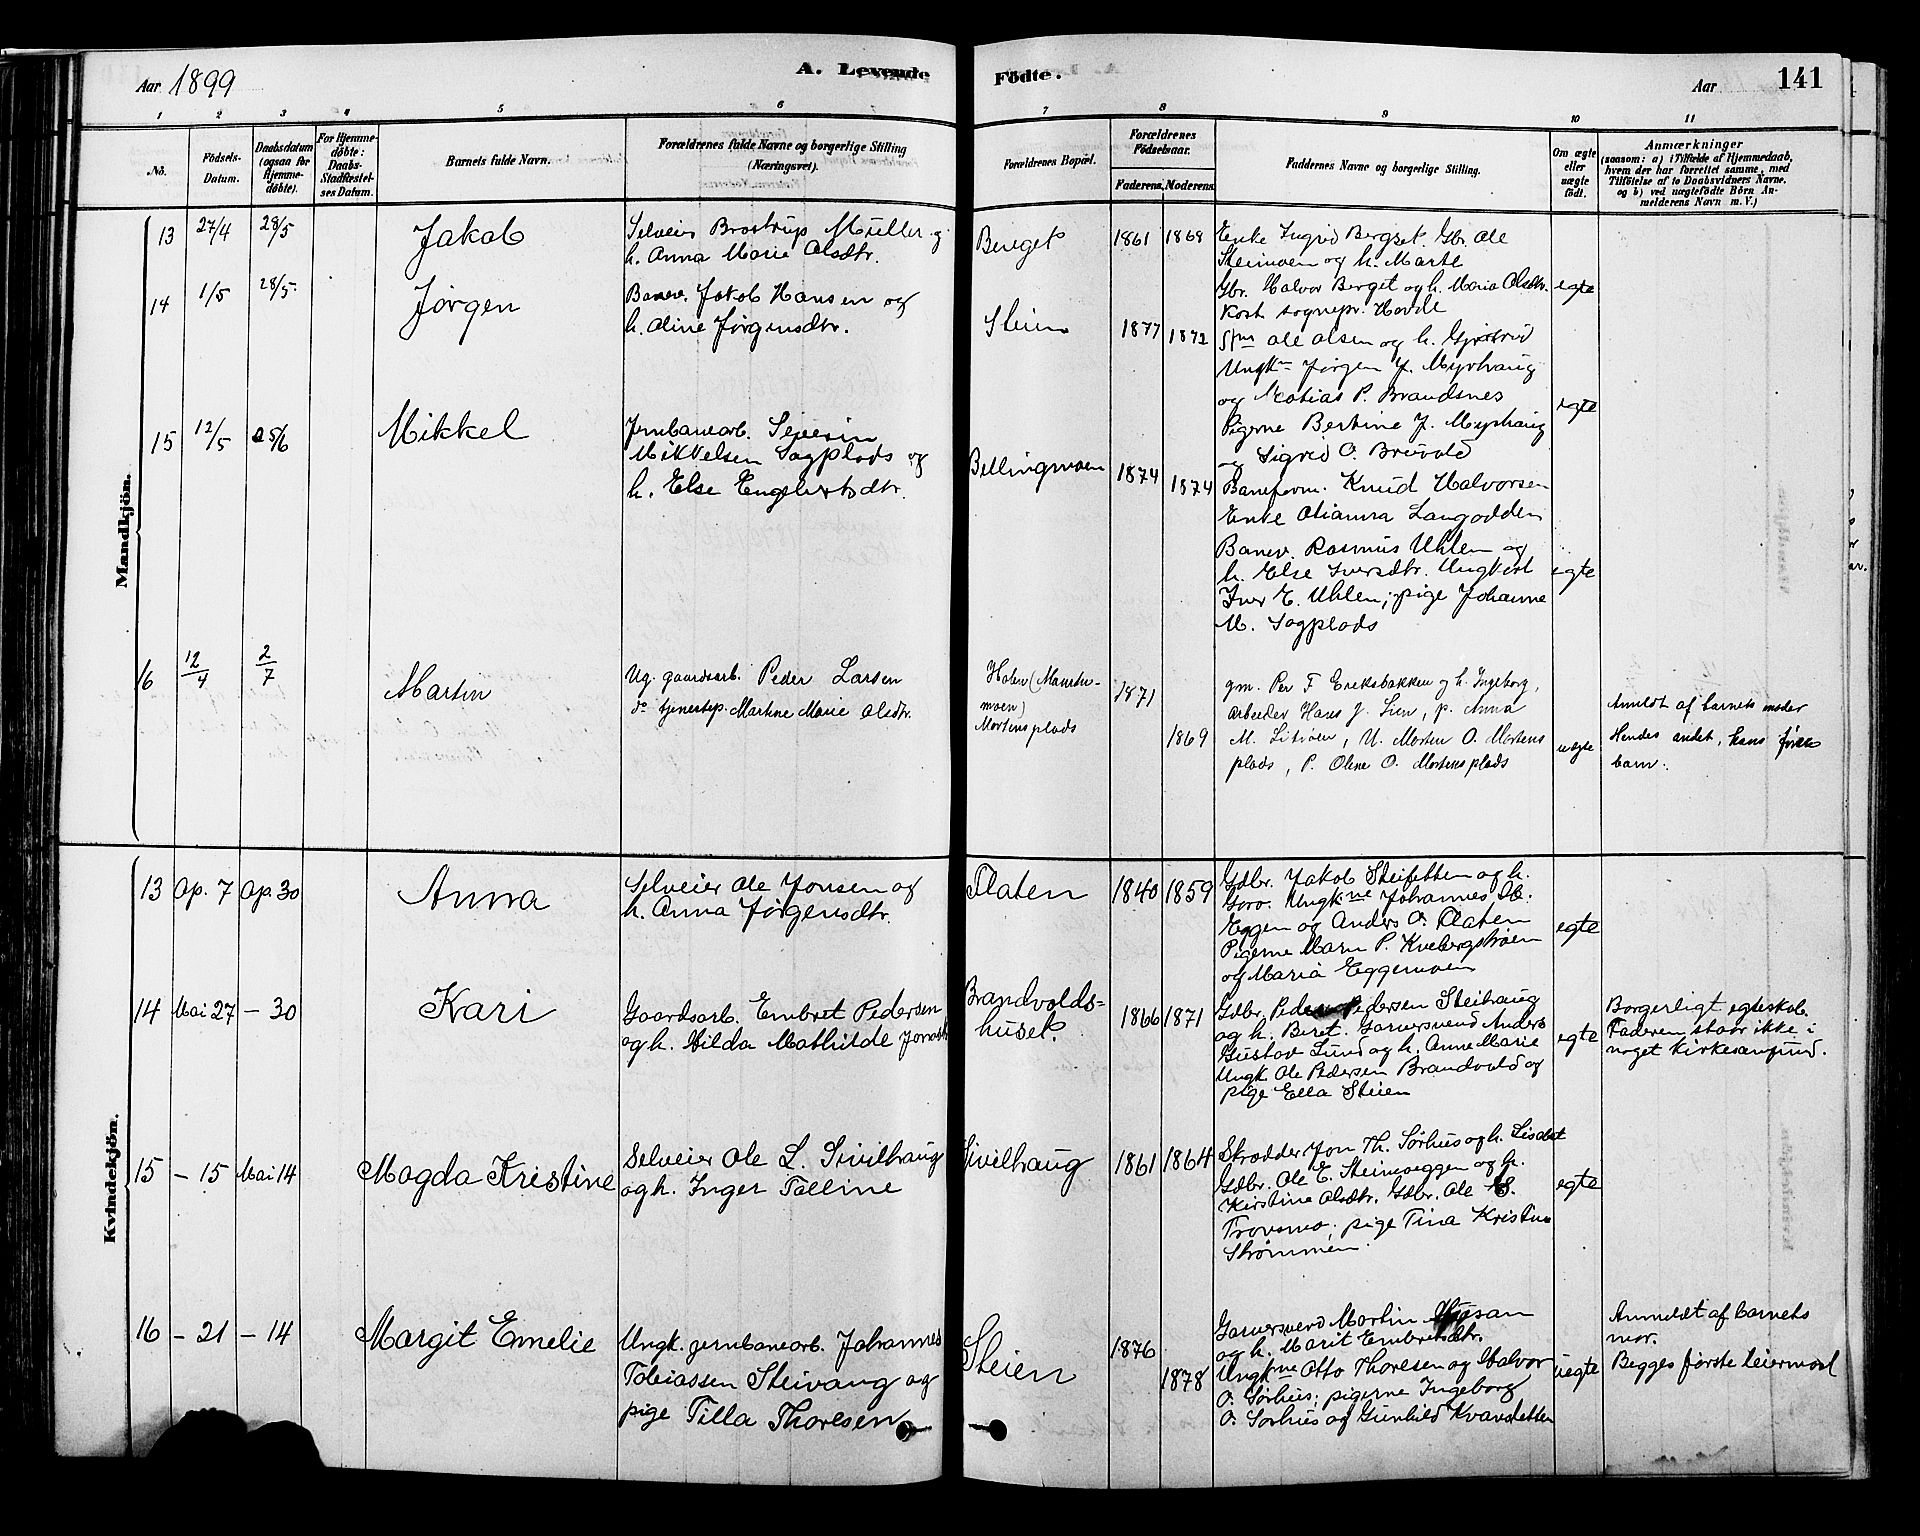 Aar 1899
A. Levende
Fødte.
Aar
141
1 2 3 4 5 6 7 8 9 10 11
No.
Fødsels-
Datum.
Daabsdatum
(ogsaa for
Hjemme-
døbte).
For Hjemme-
døbte:
Daabs-
Stadfæstel-
ses Datum.
Barnets fulde Navn.
Forældrenes fulde Navne og borgerlige Stilling
(Næringsvei).
Forældrenes Bopæl.
Forældrenes
Fødselsaar.
Faderens.
Moderens.
Faddernes Navne og borgerlige Stilling.
Om ægte
eller
uægte
født.
Anmærkninger
(saasom: a) i Tilfælde af Hjemmedaab,
hvem der har forrettet samme, med
Tilføielse af to Daabsvidners Navne,
og b) ved uægtefødte Børn An-
melderens Navn m. V.)
Mandkjön.
13 27/4 28/5
Jakob
Selveier Brostrup Müller og
h. Anna Marie Olsdtr.
Berget
1861 1868
Enke Ingrid Bergset. Gbr. Ole
Steimoen og h. Marte
Gbr. Halvor Berget og h. Maria Olsdtr.
Kost. sognepr. Hovde
egte
14 1/5 28/5
Jørgen
Banev. Jakob Hansen og
h. Oline Jørgensdtr.
Steien
1877 1872
Ole Olsen og h. Gjertrud
Ungkm Jørgen J. Myrhaug
og Matias P. Brandsnes
Pigerne Bertine J. Myrhaug
og Sigrid O. Bruvold
egte
15 12/5 25/6
Mikkel
Jernbanearb. Severin
Mikkelsen Sagplads og
h. Else Engebretsdtr.
Bellingmoen
1874 1874
Baneform. Knud Halvorsen
Enke Olianna Langodden
Banev. Rasmus Uhlen og
h. Else Iversdtr. Ungkarl
Iver E. Uhlen; pige Johanne
M. Sagplads
egte
16 12/4 2/7
Martin
Ug. gaardsarb. Peder Larsen
do tjenestep. Martine Marie Olsdtr.
Holen (
moen)
Mortensplads
1871
1869
gm. Per F Eriksbakken og h. Ingeborg,
arbeider Hans J. Lien, p. Anna
M. Litroen, U. Morten O. Mortens
plads, P. Oline O. Mortensplads
uegte
Anmeldt af barnets moder
Hendes andet, hans første
barn.
Kvindekjön.
13 Ap. 7 Ap. 30
Anna
Selveier Ole Jonsen og
h. Anna Jørgensdtr.
Flaten
1840 1859
Gdbr. Jakob Steifetten og h.
Goro. Ungk.ne Johannes H.
Eggen og Anders O. Flaten
Pigerne Marn P. Kvebergshøen
og Maria Eggemoen
egte
14 Mai 27 – 30
Kari
Gaardsarb. Embret Pedersen
og h. Hilda Mathilde Jonsdtr
Brandvolds-
huset.
1866 1871
Gdbr. Peder Pedersen Steihaug
og h. Beret. Garversvend Anders
Gustav Lund og h. Anne Marie
Ungk. Ole Pedersen Brandvold og
pige Ella Steien
egte
Borgerligt egteskab.
Faderen staar ikke i
noget kirkesamfund.
15 – 15 Mai 14
Magda Kristine
Selveier Ole L. Sivilhaug
og h. Inger Talline
Sivilhaug
1861 1864
Skrædder Jon Th. Sørhus og h. Lisabet
Gdbr. Ole E. Steimoeggen og h.
Kirstine Olsdtr. Gdbr. Ole E.
Trovomo; pige Tina Kristine
Strømmen
egte
16 – 21 – 14
Margit Emelie
Ungk. jernbanearb. Johannes
Tobiassen Steivang og
pige Tilla Thoresen
Steien
1876
1878
Garversvend Martin
og h. Marit Embretsdtr.
Ungkne Otto Thoresen og Halvor
O. Sørhus; pigerne Ingeborg
O. Sørhus og Gunhild Kvansletten
uegte
Anmeldt af barnets
mor.
Begges første leiermaal